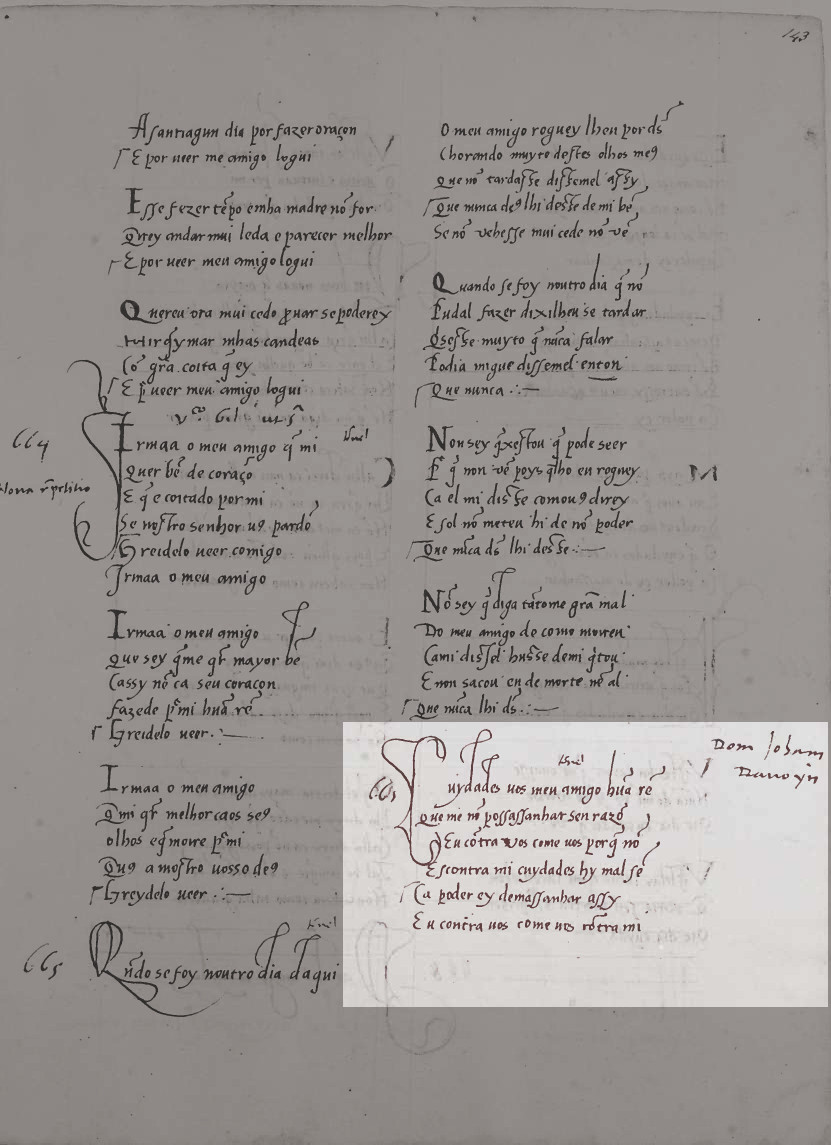 143
A santiagun dia por fazer oraçon
E por ueer meu amigo logui
Esse fezer tẽpo emha madre nõ for
Querey andar mui leda e parecer melhor
E por ueer meu amigo logui
Quereu ora mui cedo ꝓuar se poderey
queymar mhas candeas
Cõ grã coita q̃ ey
E p̃ ueer meu amigo logui
664
Irmaa o meu amigo q̃ mi
Quer bẽ de coraço
E q̃ e coitado por mi
Se nostro senhor uꝯ pardõ
Treidelo ueer comigo
Irmaa o meu amigo
Irmaa o meu amigo
Que sey q̃me q̃r mayor bẽ
Cassy nõ ca seu coraçon
fazede p̃ mi hũa rẽ
Treidelo ueer
Irmaa o meu amigo
Q̃mi q̃r melhor caos seꝯ
olhos eq̃ moire p̃ mi
Quꝯ amostro uosso deꝯ
Treydelo ueer
665
Q̃ndo se foy noutro dia daqui
O meu amigo roguey lheu por ds̃
Chorando muyto destes olhos meꝯ
Que nõ tardasse dissemel assy
Que nunca deꝯ lhi desse de mi bẽ
Se nõ vehesse mui cede nõ vẽ
Quando se foy noutro dia q̃ nõ
Pudal fazer dixilheu se tardar
Q̃sesse muyto q̃ nũca falar
Podia migue dissemel enton
Que nunca
Non sey q̃xestou q̃ pode seer
E q̃ non vẽ poys q̃lho eu roguey
Ca el mi disse comouꝯ direy
E sol nõ meteu hi de nõ poder
Que nũca ds̃ lhi desse
M
Nõ sey q̃ diga tãtome grã mal
Do meu amigo de como morreu
Cami dissel husse demi q̃tou
E non sacou en de morte nẽ al
Que nũca lhi ds̃
Dom Joham
Dauoyn
Cuydades uos meu amigo hũa rẽ
Que me nõ possassanhar sen razõ
Eu cõtra uos come uos porq̃ nõ
Escontra mi cuydades hy mal sẽ
Ca poder ey demassanhar assy
Eu contra uos come uos cõtra mi